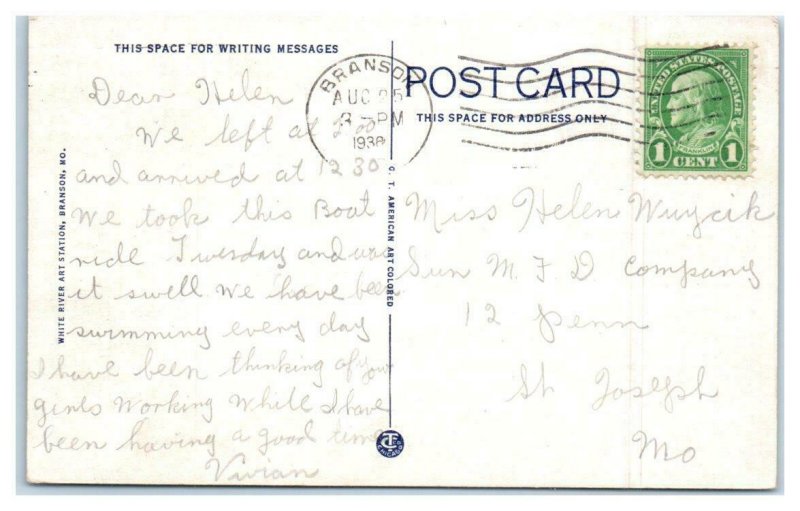 THIS SPACE FOR WRITING MESSAGES
Dear Helen
We left at 2:00
and arrived at 12 30
We took this Boat
ride Tuesday and was
it swell We have been
swimming every day
I have been thinking of your
girls working while I have
been having a good time
Vivian
WHITE RIVER ART STATION, BRANSON, MO.
C. T. AMERICAN ART COLORED
CT
CHICAGO
BRANSON
AUG 25
PM
POST CARD
THIS SPACE FOR ADDRESS ONLY
UNITED STATES POSTAGE
FRANKLIN
1 CENT 1
Miss Helen Wuycik
Sun M F D Company
12 Penn
St Joseph
Mo